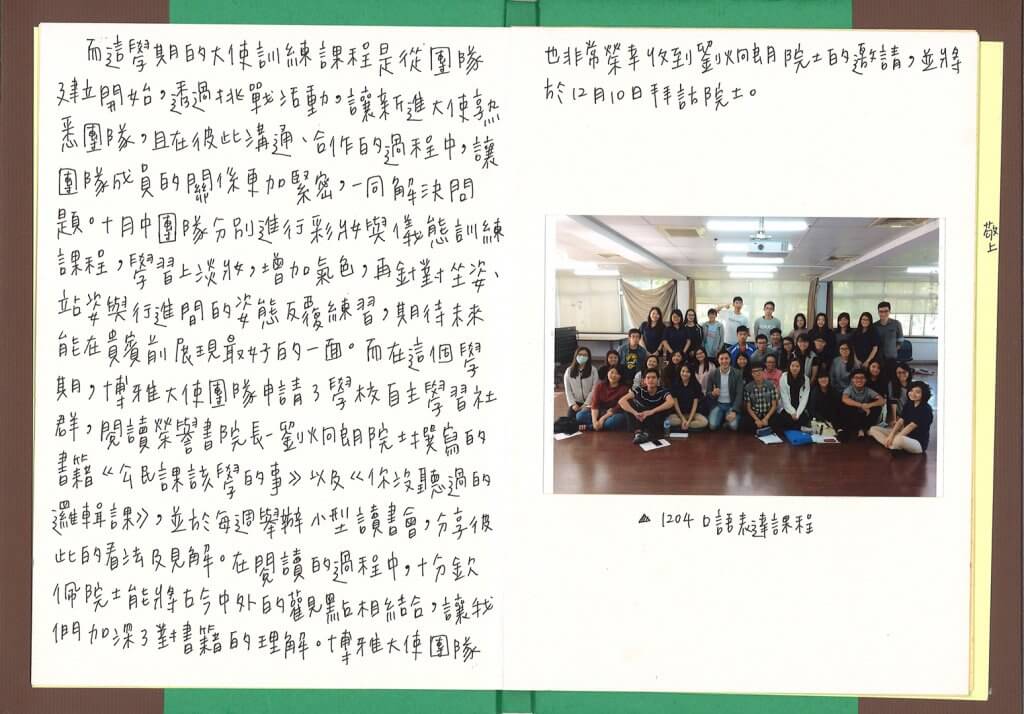 而這學期的大使訓練課程是從團隊
建立開始，透過挑戰活動，讓新進大使熟
悉團隊，且在彼此溝通、合作的過程中，讓
團隊成員的關係更加緊密，一同解決問
題。十月中團隊分別進行彩妝與儀態訓練
課程，學習上淡妝，增加氣色，再針對坐姿、
站姿與行進間的姿態反覆練習，期待未來
能在貴賓前展現最好的一面。而在這個學
期，博雅大使團隊申請了學校自主學習社
群，閱讀榮譽書院長-劉炯朗院士撰寫的
書籍《公民課該學的事》以及《你沒聽過的
邏輯課》，並於每週舉辦小型讀書會，分享彼
此的看法及見解。在閱讀的過程中，十分欽
佩院士能將古今中外的觀點相結合，讓我
們加深了對書籍的理解。博雅大使團隊
也非常榮幸收到劉炯朗院士的邀請，並將
於12月10日拜訪院士。
▲ 1204 口語表達課程
敬上